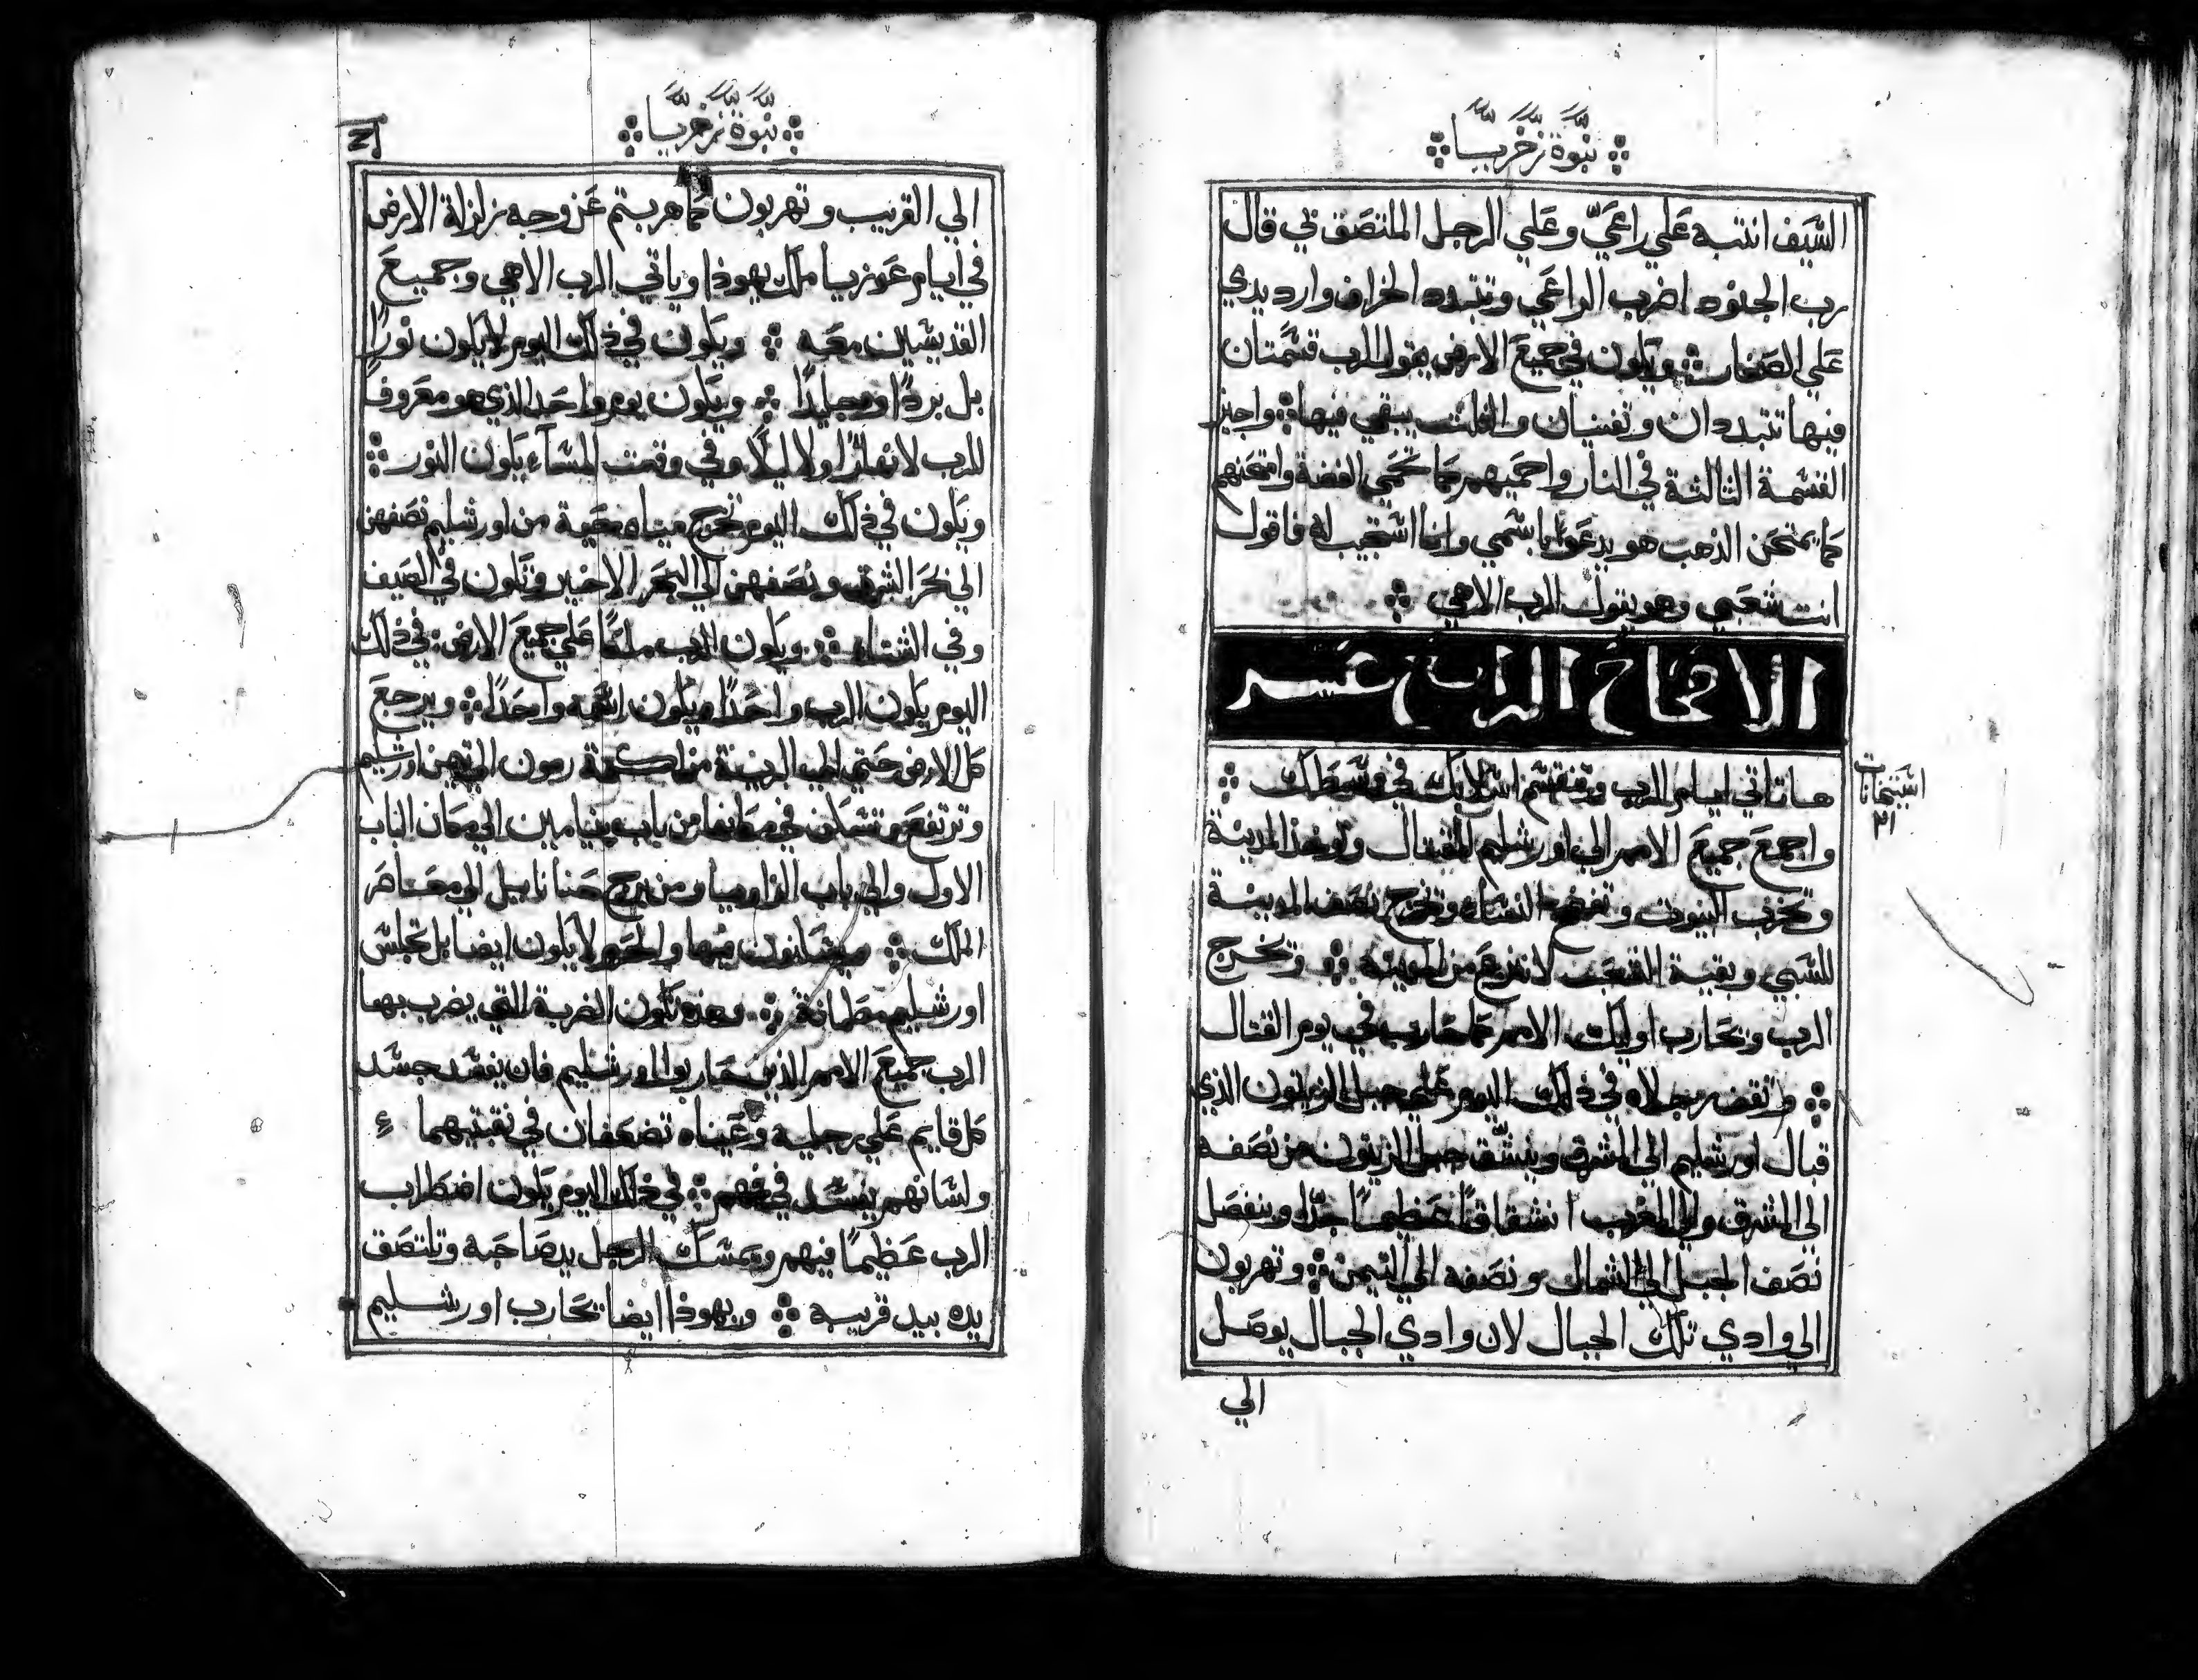 نبوة زخريا
السيف انتبه علي راعيّ وعلي الرجل الملتصق بي قال
رب الجنود اضرب الراعي وتتبدد الخراف وارد يدي
علي الصغار ويكون في جميع الارض يقول الرب قسمتان
فيها تتبددان وتفنيان والثلث يبقي فيها واجيز
القسمة الثالثة في النار واحميهم كما تحمي الفضة وامتحنهم
كما يمتحن الذهب هو يدعوا باسمي وانا استجيب له فاقول
انت شعبي وهو يقول الرب الاهي
الاصحاح الرابع عشر
ها تاتي ايام الرب وتنقسم اسلابك في وسطك
واجمع جميع الامم الي اورشليم للقتال وتوخذ المدينة
وتخرب البيوت وتفضح النساء وتخرج نصف المدينة
للسبي وبقية الشعب لا تنزع من المدينة وتخرج
الرب وتحارب اوليك الامم كما حارب في يوم القتال
وتقف رجلاه في ذلك اليوم علي جبل الزيتون الذي
قبال اورشليم الي المشرق وينشق جبل الزيتون من نصفه
الي المشرق والي المغرب انشقاقا عظيما جدا وينفصل
نصف الجبل الي الشمال ونصفه الي التيمن وتهربون
الي وادي تلك الجبال لان وادي الجبال يوصل
الي
نبوة زخريا
الي القريب وتهربون كما هربتم عن وجه زلزلة الارض
في ايام عوزيا ملك يهوذا وياتي الرب الاهي وجميع
القديسين معه ويكون في ذلك اليوم لا يكون نورًا
بل بردًا وجليدًا ويكون يوم واحد الذي هو معروف
للرب لا نهارًا ولا ليلًا وفي وقت المساء يكون النور
ويكون في ذلك اليوم تخرج مياه محيية من اورشليم نصفهن
الي بحر الشرق ونصفهن الي البحر الاخير وتكون في الصيف
وفي الشتاء ويكون الرب ملكًا علي جميع الارض في ذلك
اليوم يكون الرب واحدًا ويكون اسمه واحدًا ويرجع
كل الارض حتي الي البرية من اكمة رمون الي تيمن اورشليم
وترتفع وتسكن في مكانها من باب بنيامين الي مكان الباب
الاول والي باب الزاويا ومن برج حنانا ييل الي معاصر
الملك ويسكنون فيها والحرم لا يكون ايضا بل تجلس
اورشليم مطمانة وهذه تكون الضربة التي يضرب بها
الرب جميع الامم الذين حاربوا اورشليم فان يفسد جسد
كل قايم علي رجليه وعيناه تضعفان في نقبتيهما
ولسانهم يفسد في فمهم في ذلك اليوم يكون اضطراب
الرب عظيمًا فيهم ويمسك الرجل يد صاحبه وتلتصق
يده بيد قريبه ويهوذا ايضا يحارب اورشليم